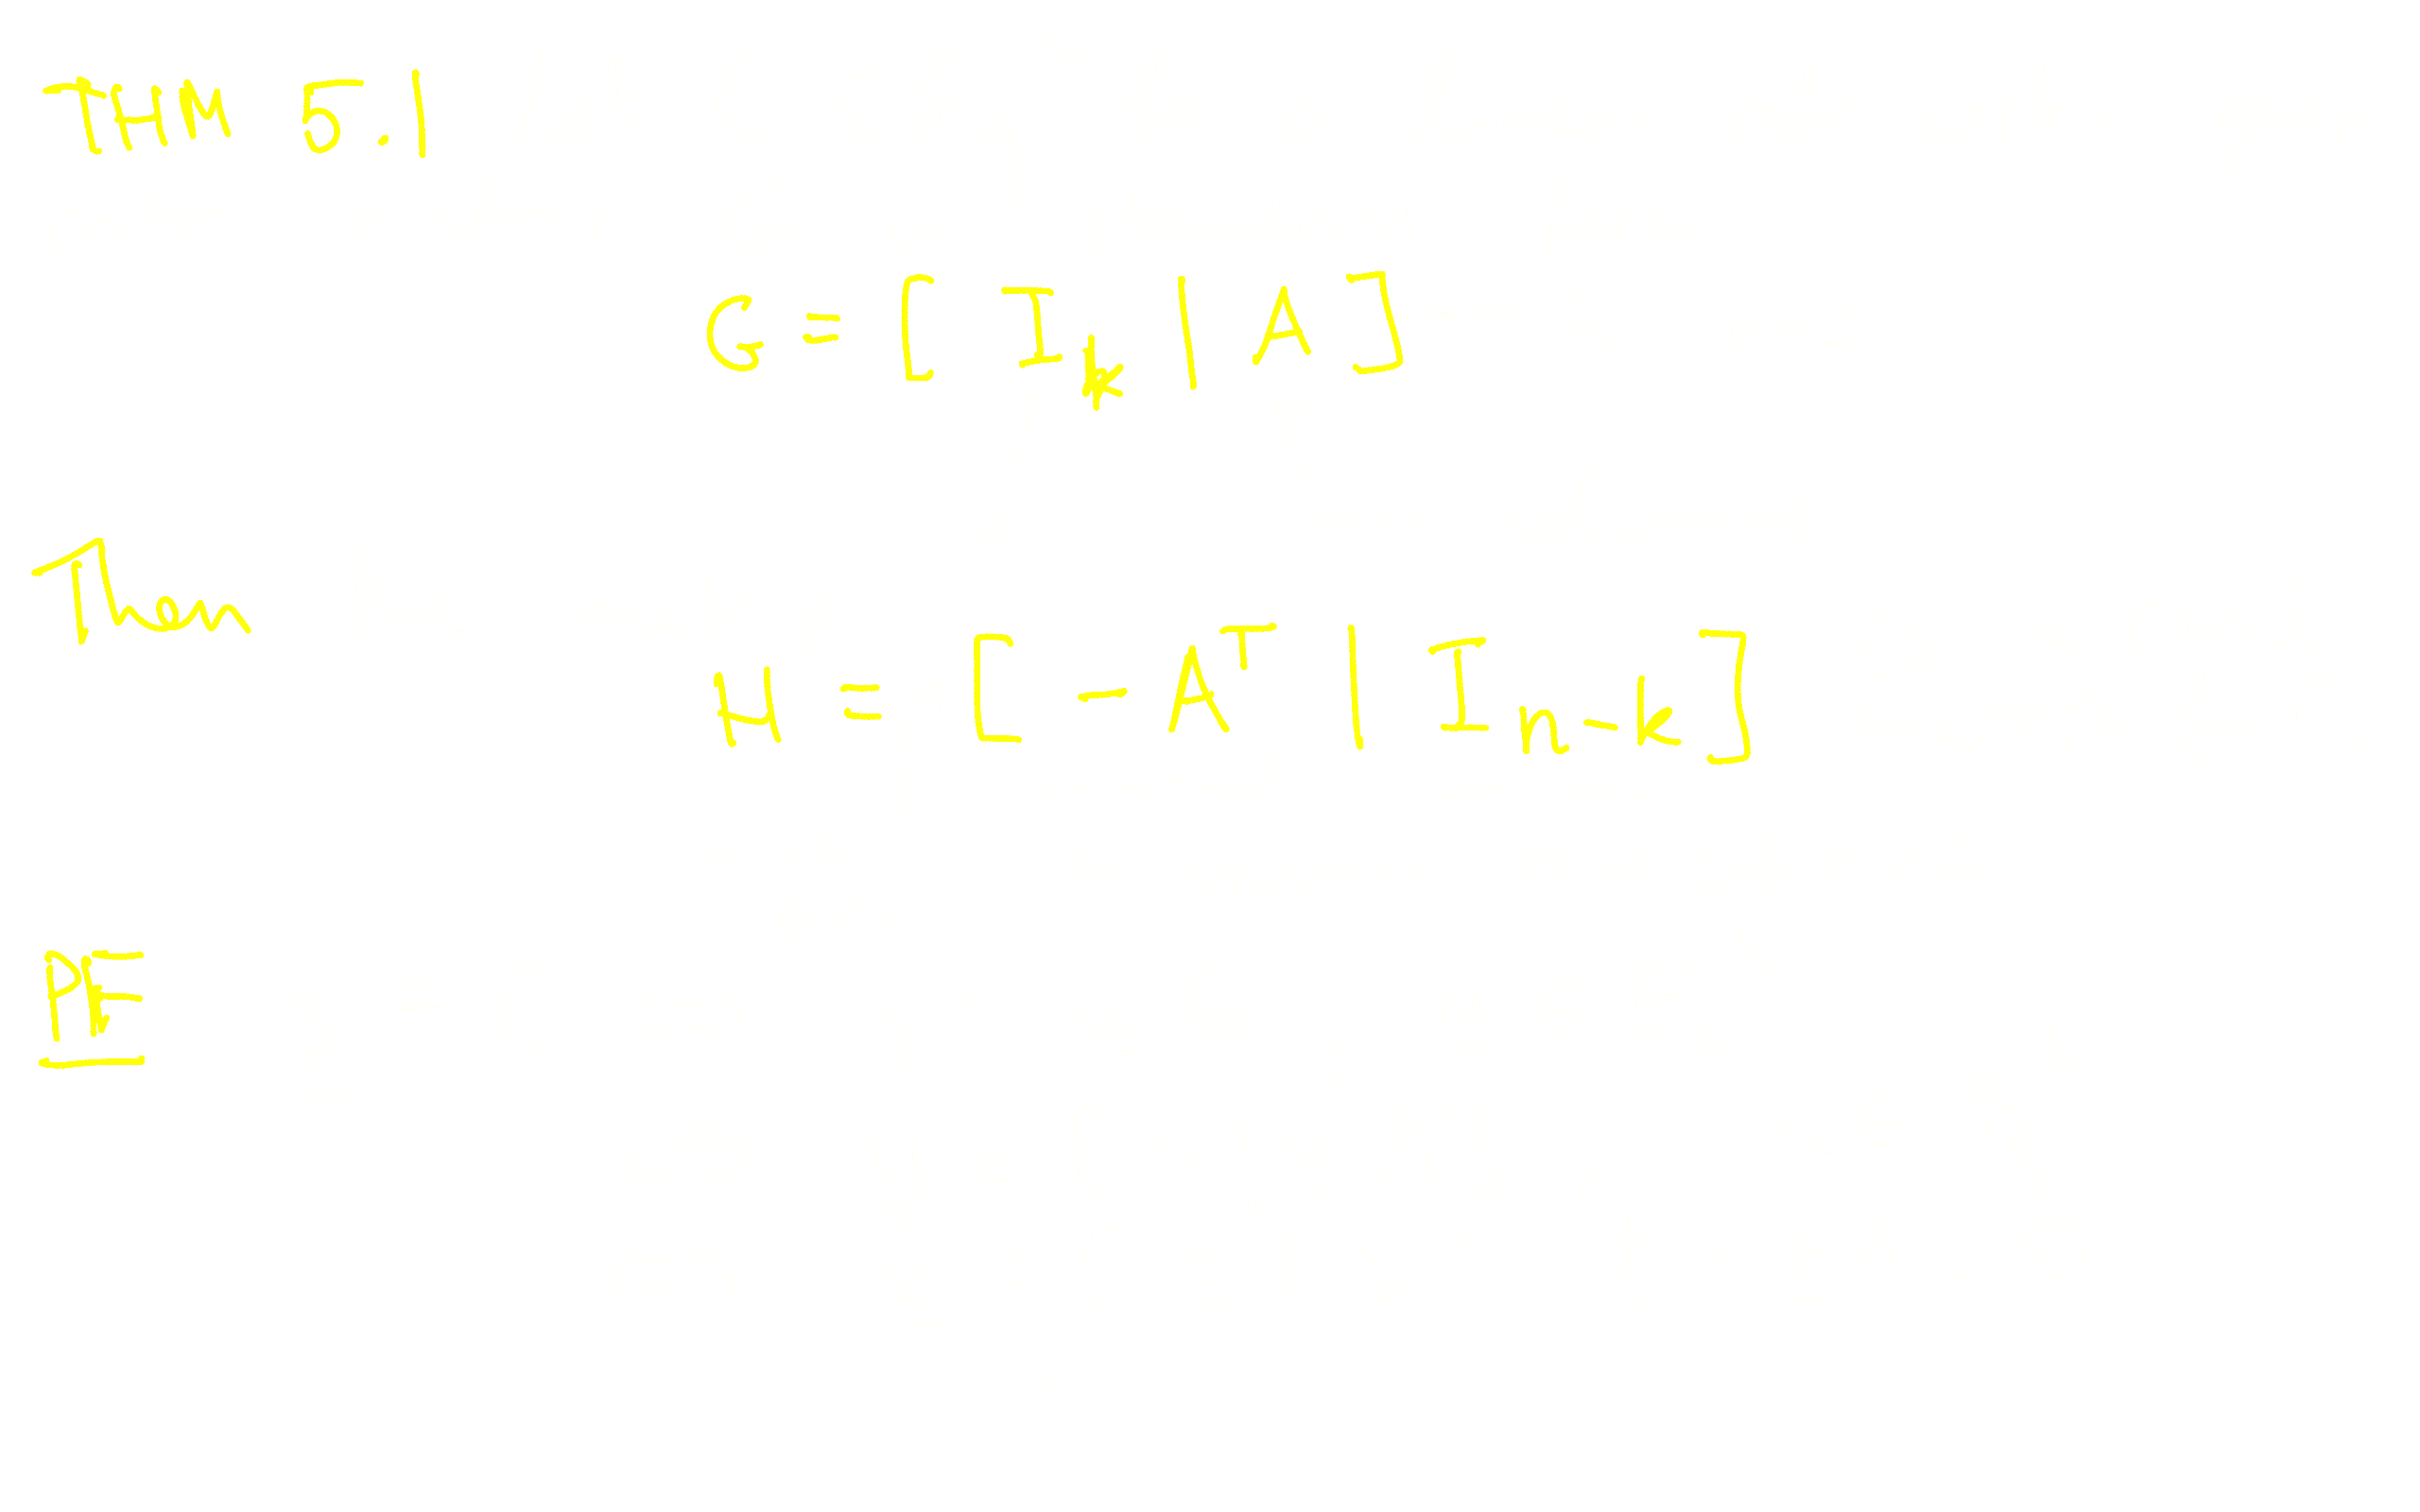 THM 5.1
G = [ I_k | A ]
Then
H = [ - A^T | I_{n-k} ]
PF